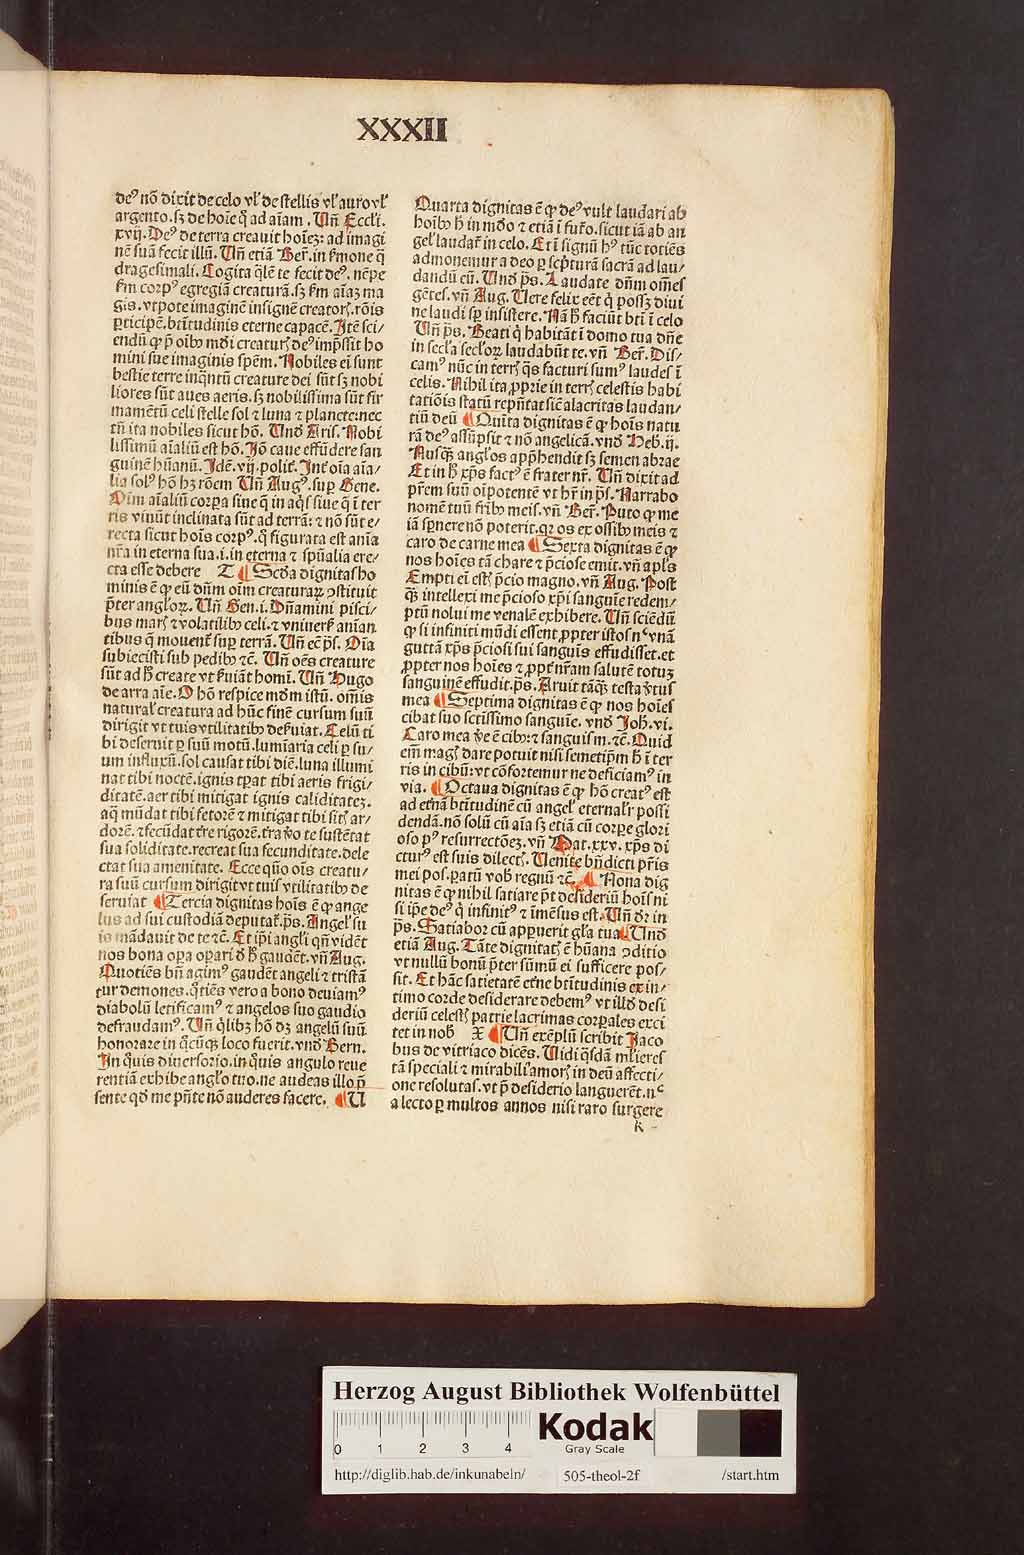 XXXII
deꝰ nō dixit de celo vl̓ de stellis vl̓ auro vl̓
argento. sꝫ de hoīe q̄ ad aīam. Uñ Eccl̓i.
xvij. Deꝰ de terra creauit hoīeꝫ: ad imagi
nē suā fecit illū. Uñ etiā Ber̄. in s̓mone q̄
dragesimali. Cogita q̄lē te fecit deꝰ. nēpe
s̓m corpꝰ egregiā creaturā. sꝫ s̓m aīaꝫ ma
gis. vtpote imaginē insignē creatorꝭ. rōis
ꝑticipē. btītudinis eterne capacē. Itē sci/
endū ꝙ p̄ oībꝰ mūdi creaturꝭ deꝰ imp̄ssit ho
mini sue imaginis spēm. Nobiles ei sunt
bestie terre inqntū creature dei sūt sꝫ nobi
liores sūt aues aeris. sꝫ nobilissima sūt fir
mamētū celi stelle sol ⁊ luna ⁊ planete: nec
tñ ita nobiles sicut hō. Unđ Aris. Nobi
lissimū aīaliū est hō. Iō caue effūdere san
guinē hūanū. Idē. vij. polit̄. Int̄ oīa aīa/
lia solꝰ hō hꝫ rōem Uñ Augꝰ. suꝑ Gene.
Oīm aīaliū corꝑa siue q̄ in aqꝭ siue q̄ ī ter
ris viuūt inclinata sūt ad terrā: ⁊ nō sūt e/
recta sicut hoīs corpꝰ. ꝙ figurata est anīa
nr̄a in eterna sua. i. in eterna ⁊ spūalia ere/
cta esse debere T ¶ Scđa dignitas ho
minis ē ꝙ eū dñm oīm creaturaꝝ ꝯstituit
p̄ter angl̓oꝝ. Uñ Gen. i. Dñamini pisci/
bus marꝭ ⁊ volatilibꝰ celi. ⁊ vniuers̓ animan
tibus q̄ mouent̄ suꝑ terrā. Uñ ec̄ p̄s. Oīa
subiecisti sub pedibꝰ ⁊c̄. Uñ oēs creature
sūt ad h̓ create vt s̓uiāt homī. Uñ Hugo
de arra aīe. O hō respice mūdm istū. omīs
natural̓ creatura ad hūc finē cursum suū
dirigit vt tuis vtilitatibꝰ des̓uiat. Celū ti
bi deseruit ꝑ suū motū. lumīaria celi ꝑ su/
um influxū. sol causat tibi diē. luna illumi
nat tibi noctē. ignis tꝑat tibi aeris frigi/
ditatē. aer tibi mitigat ignis caliditateꝫ.
aq̄ mūdat tibi fetorē ⁊ mitigat tibi sitꝭ ar/
dorē. ⁊ fecūdat tr̄e rigorē. tr̄a v̓o te sustētat
sua soliditate. recreat sua fecunditate. dele
ctat sua amenitate. Ecce quō oīs creatu/
ra suū cursum dirigit vt tuis vtilitatibꝰ de
seruiat ¶ Tercia dignitas hoīs ē ꝙ ange
lus ad sui custodiā deputat̄. p̄s. Angel̓ su
is mādauit de te ⁊c̄. Et ip̄i angl̓i qn̄ vidēt
nos bona oꝑa oꝑari đ h̓ gaudēt. vñ Aug.
Quotiēs bñ agimꝰ gaudēt angeli ⁊ tristā
tur demones. q̄tiēs vero a bono deuiamꝰ
diabolū letificamꝰ ⁊ angelos suo gaudio
defraudamꝰ. Uñ q̄libꝫ hō dꝫ angelū suū
honorare in q̄cūqꝫ loco fuerit. vnđ Bern.
In q̄uis diuersorio. in q̄uis angulo reue
rentiā exhibe angl̓o tuo. ne audeas illo p̄
sente qđ me p̄nte nō auderes facere. ¶ U
Quarta dignitas ē ꝙ deꝰ vult laudari ab
hoībꝰ h̓ in mūdo ⁊ etiā ī fut̄o. sicut iā ab an
gel̓ laudat̄ in celo. Et ī signū hꝰ tūc totiēs
admonemur a deo ꝑ sc̓pturā sacrā ad lau/
dandū eū. Unđ p̄s. Laudate dñm om̄es
gētes. vñ Aug. Uere felix eēt q̄ possꝫ diui
ne laudi sꝑ insistere. Nā h̓ faciūt btī ī celo
Uñ p̄s. Beati q̄ habitāt ī domo tua dñe
in secl̓a secl̓oꝝ laudabūt te. vñ Ber̄. Dis/
camꝰ nūc in terrꝭ qꝭ facturi sumꝰ laudes ī
celis. Nihil ita ꝓprie in terrꝭ celestis habi
tatiōis statū rep̄ntat sicut alacritas laudan/
tiū deū ¶ Quīta dignitas ē ꝙ hoīs natu
rā deꝰ assūpsit ⁊ nō angelicā. vnđ Heb. ij.
Nusqꝫ angl̓os app̄hendit sꝫ semen abrae
Et in h̓ xp̄s factꝰ ē frater nr̄. Uñ dixit ad
pr̄em suū oīpotentē vt hr̄ in p̄s. Narrabo
nomē tuū fr̄ibꝰ meis. vñ Ber̄. Puto ꝙ me
iā sꝑnere nō poterit. qꝛ os ex ossibꝰ meis ⁊
caro de carne mea ¶ Sexta dignitas ē ꝙ
nos hoīes tā chare ⁊ p̄ciose emit. vñ apl̓s
Empti ei estꝭ p̄cio magno. vñ Aug. Post
qꝫ intellexi me p̄cioso xp̄i sanguīe redem/
ptū nolui me venalē exhibere. Uñ sciēdū
ꝙ si infiniti mūdi essent ꝓpter istos nꝭ vnā
guttā xp̄s p̄ciosi sui sanguīs effudisset. et
ꝓpter nos hoīes ⁊ ꝓpt̄ nr̄am salutē totuꝫ
sanguinē effudit. p̄s. Aruit tāqꝫ testa v̓tus
mea ¶ Septima dignitas ē ꝙ nos hoīes
cibat suo sctīssimo sanguīe. vnđ Joh. vi.
Caro mea v̓e ē cibꝰ: ⁊ sanguis m. ⁊c̄. Quid
em̄ magꝭ dare potuit nisi semetip̄m h̓ ī ter
ris in cibū: vt cōfortemur ne deficiamꝰ in
via. ¶ Octaua dignitas ē ꝙ hō creatꝰ est
ad et̓nā btītudinē cū angel̓ eternal̓r possi
dendā. nō solū cū aīa sꝫ etiā cū corꝑe glori
oso pꝰ resurrectōeꝫ. vñ Mat. xxv. xp̄s di
cturꝰ est suis dilectꝭ. Uenite bñdicti pr̄is
mei pos. ꝑatū vob̓ regnū ⁊c̄. ¶ Nona dig
nitas ē ꝙ nihil satiare p̄t desideriū hoīs ni
si ip̄e deꝰ q̄ infinitꝰ ⁊ īmēsus est. Uñ đr in
p̄s. Satiabor cū apꝑuerit gl̓a tua ¶ Unđ
etiā Aug. Tāte dignitatꝭ ē hūana ꝯditio
vt nullū bonū p̄ter sūmū ei sufficere pos/
sit. Et hāc satietatē et̓ne btītudinis ex in/
timo corde desiderare debemꝰ vt illđ desi
deriū celestꝭ patrie lacrimas corꝑales exci
tet in nob̓ X ¶ Uñ exēplū scribit Jaco
bus de vitriaco dicēs. Uidi q̄sdā ml̓ieres
tā speciali ⁊ mirabili amorꝭ in deū affecti/
one resolutas. vt p̄ desiderio languerēt. nᶜ
a lecto ꝑ multos annos nisi raro surgere
k
Herzog August Bibliothek Wolfenbüttel
0 1 2 3 4
Kodak
Gray Scale
http://diglib.hab.de/inkunabeln/ 505-theol-2f /start.htm